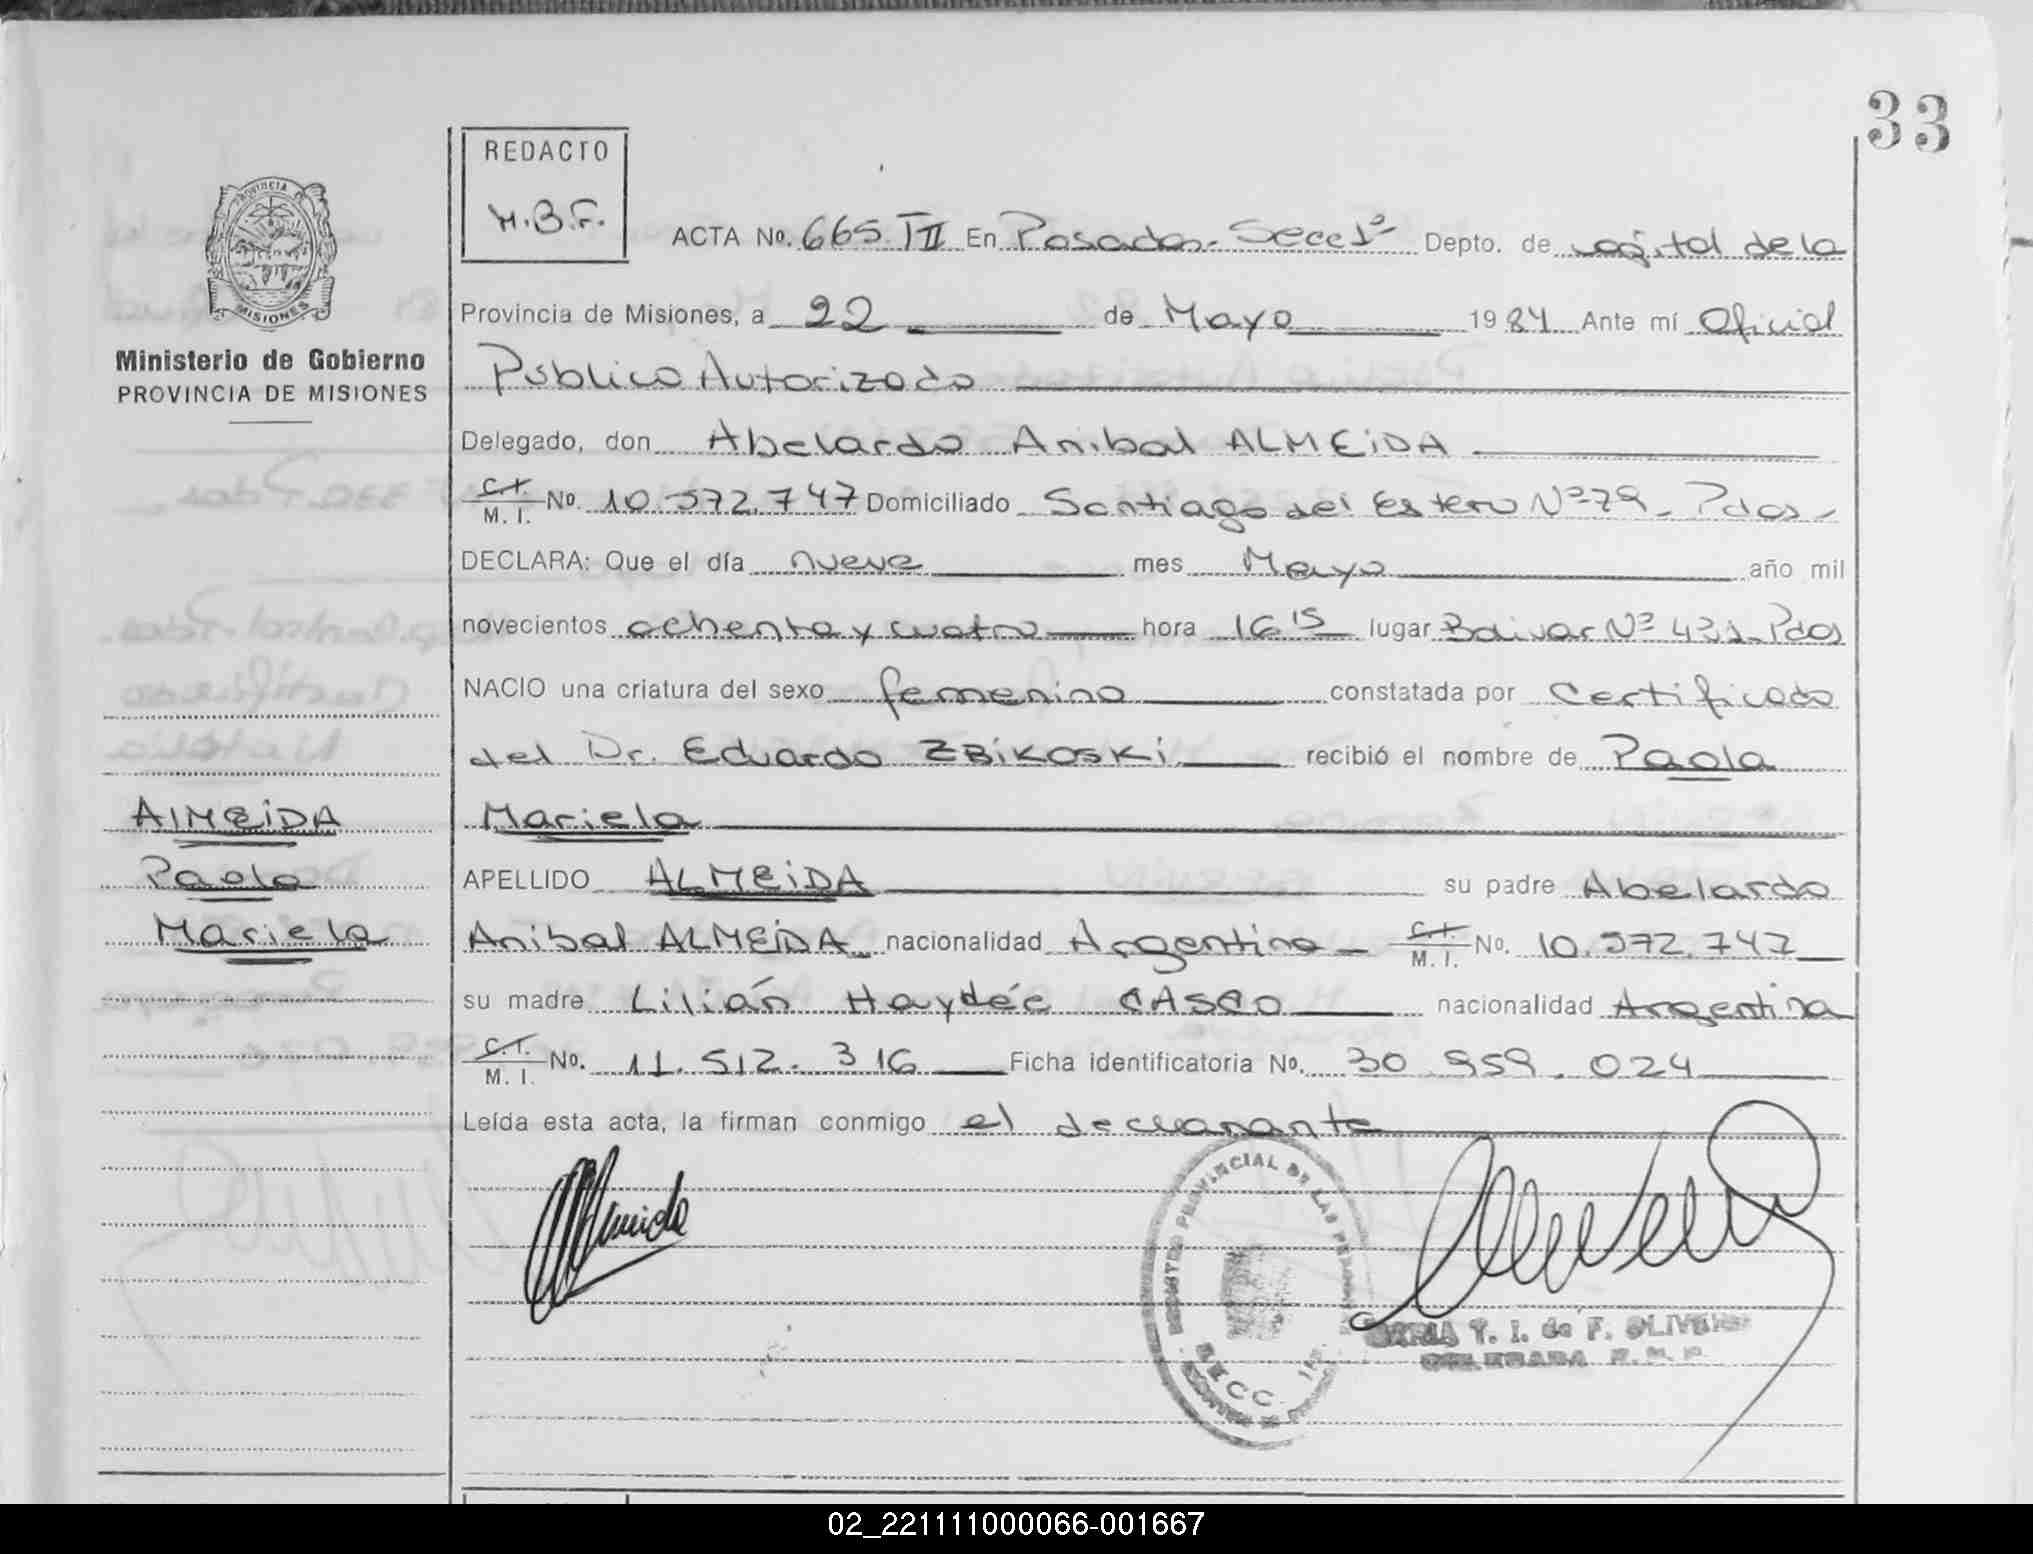 33
REDACTO
H.B.F.
ACTA No. 665 TII En Posadas - Secc 1ª Depto. de capital de la
PROVINCIA DE
MISIONES
Ministerio de Gobierno
PROVINCIA DE MISIONES
Provincia de Misiones, a 22 de Mayo 1984 Ante mí Oficial
Público Autorizado
Delegado, don Abelardo Anibal ALMEIDA
C.I. M. I. No. 10.572.747 Domiciliado Santiago del Estero Nº 79 - Pdas -
DECLARA: Que el día nueve mes Mayo año mil
novecientos ochenta y cuatro hora 16 15 lugar Bolivar Nº 431 - Pdas
NACIO una criatura del sexo femenino constatada por Certificado
del Dr. Eduardo ZBIKOSKI recibió el nombre de Paola
Mariela
APELLIDO ALMEIDA su padre Abelardo
Anibal ALMEIDA nacionalidad Argentina - C.I. M. I. No. 10.572.747
su madre Lilián Haydée CASCO nacionalidad Argentina
C.I. M. I. No. 11.512.316 Ficha identificatoria No. 30.959.024
Leída esta acta, la firman conmigo el declarante
ALMEIDA
Paola
Mariela
Almeida
REGISTRO PROVINCIAL DE LAS PERSONAS
SECC. 1ra.
MARIA T. I. de F. OLIVERA
DELEGADA R. P. P.
02_221111000066-001667